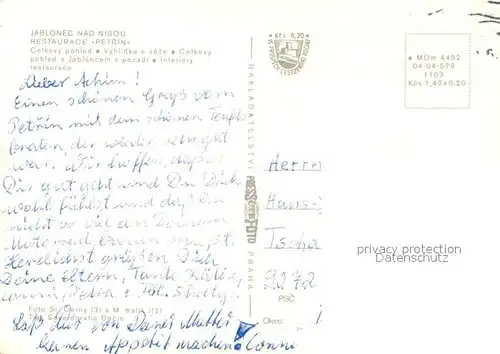 JABLONEC NAD NISOU
RESTAURACE »PETŘÍN«
Celkový pohled • Vyhlídka s věže • Celkový
pohled s Jabloncem v pozadí • Interiéry
restaurace
Kčs 0,20
Lieber Achim!
Einen schönen Gruß vom
Petřín mit dem schönen
braten, der wieder sehr gut
war. Wir hoffen, daß es
Dir gut geht und Du Dich
wohl fühlst und daß Du
nicht so viel an Deinem
Motorrad bauen mußt.
Herzlichst grüßen Dich
Deine Eltern, Tante Käthe,
Conni, Petra + Fam.
Foto St. Černý (3) a M. Kafík (2)
Tisk Severografia Děčín
Laß dir von Deiner Mutter
keinen Appetit machen! Conni
NAKLADATELSTVÍ
PRESSFOTO
PRAHA
MDm 4452
04-04-578
1103
Kčs 1,40+0,20
Herrn
Hans-
Tscha
9272
PSČ
Okres:
privacy protection
Datenschutz